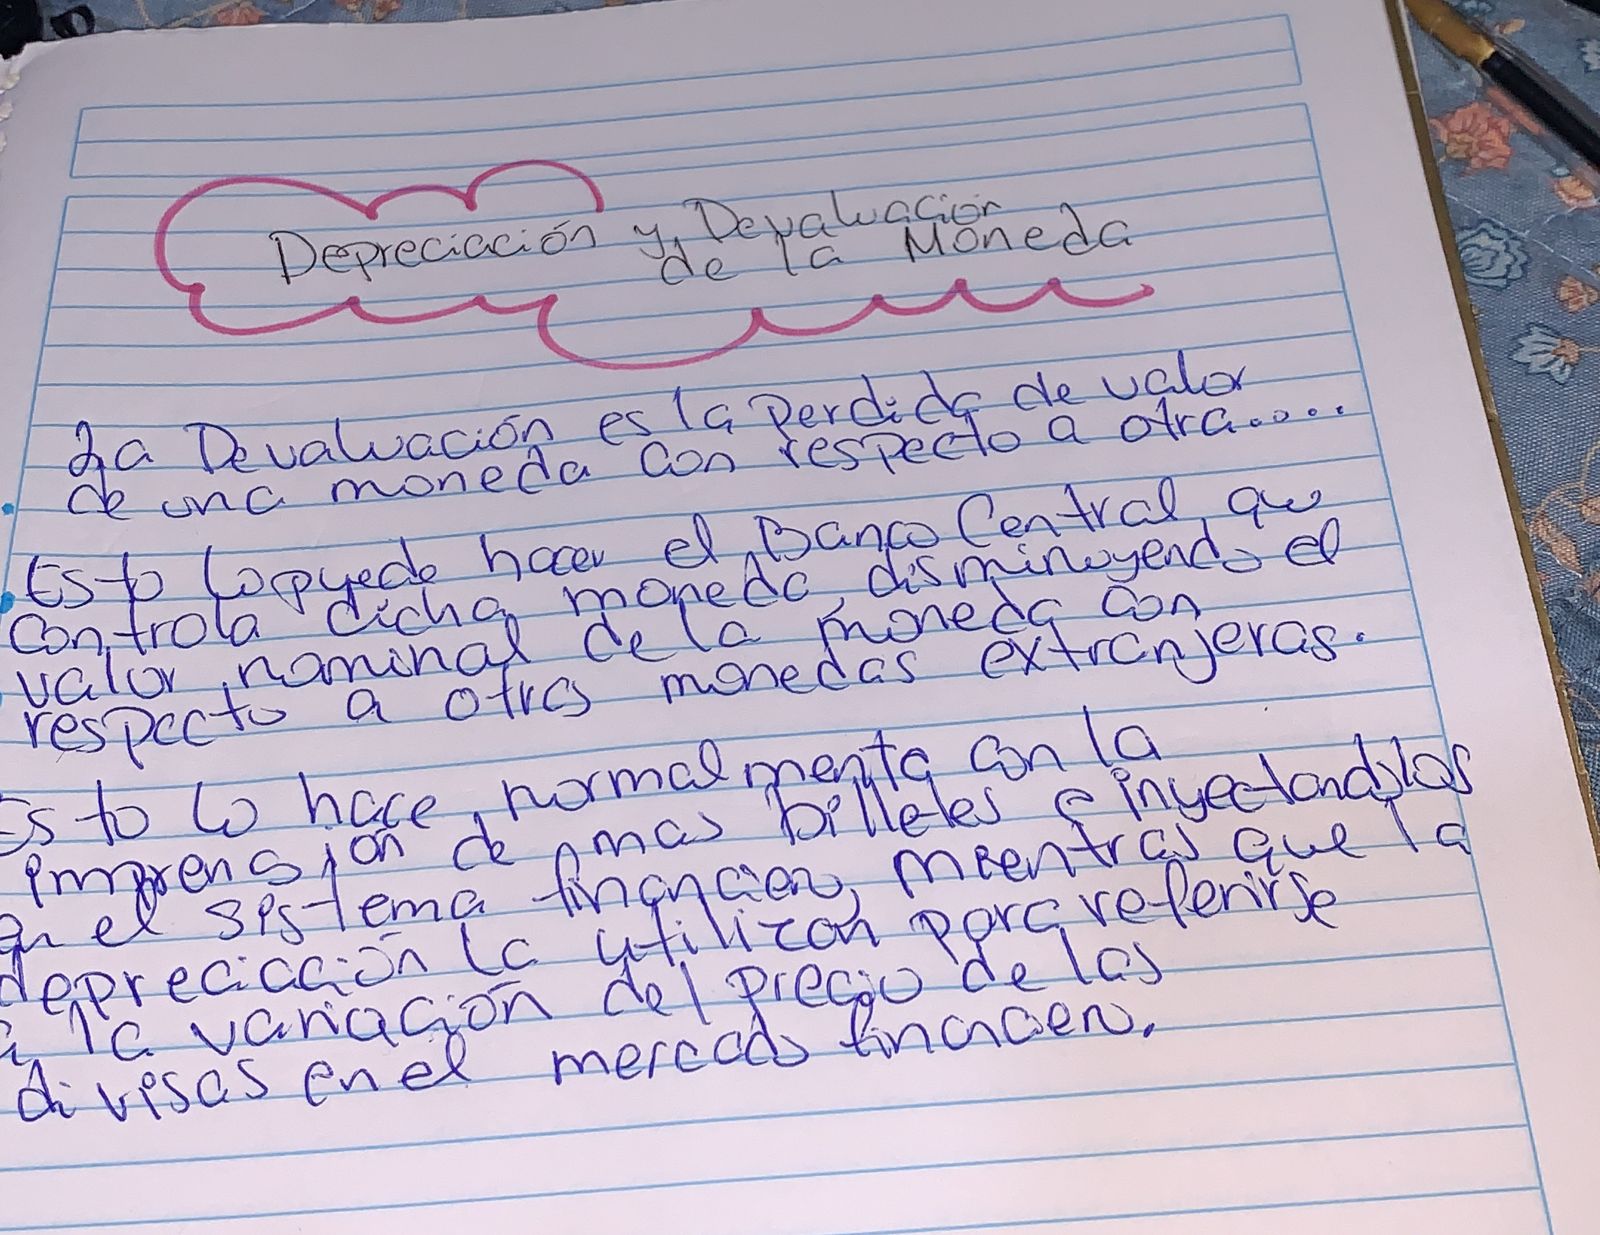 Depreciación y Devaluación
de la Moneda
La Devaluación es la perdida de valor
de una moneda con respecto a otra.....
Esto lo puede hacer el Banco Central, que
controla dicha moneda, disminuyendo el
valor nominal de la moneda con
respecto a otras monedas extranjeras.
Esto lo hace, normalmente con la
imprension de mas billetes e inyectandolos
en el sistema financiero, mientras que la
depreciación la utilizan para referirse
a la variación del precio de las
divisas en el mercado financiero.